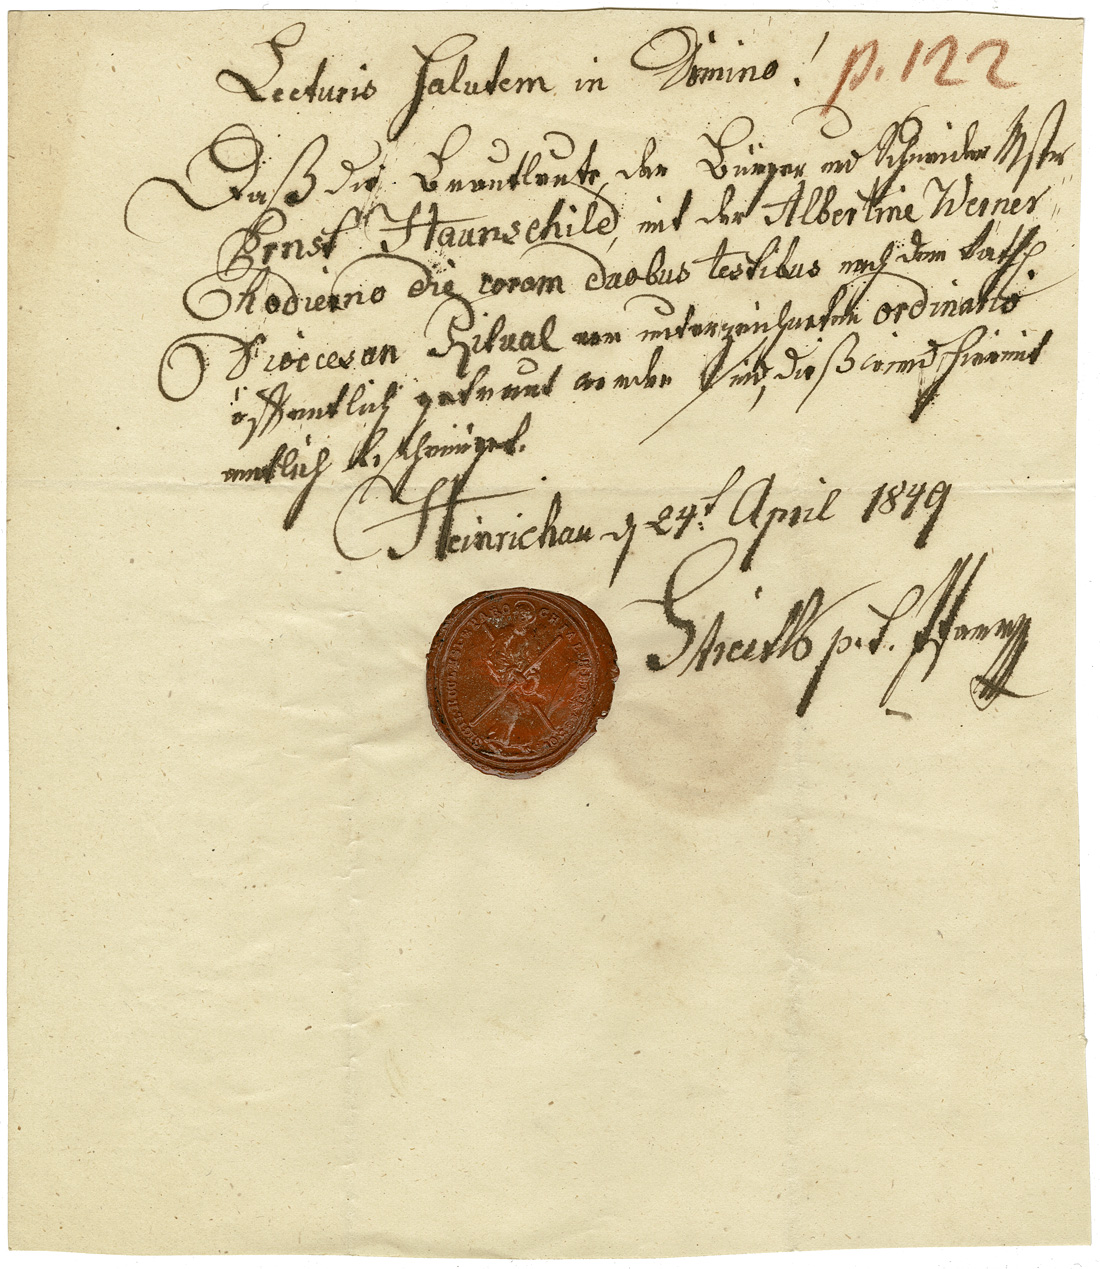 Lecturis salutem in Domino! p. 122
Daß die Brautleute, der Bürger und Schneider Mstr
Ernst Haunschild, mit der Albertine Werner
hodierno die coram duobus testibus nach dem kath.
Dioecesan Ritual von unterzeichneten ordinario
öffentlich getraut worden sind, dieß wird hiermit
amtlich bescheiniget.
Heinrichau d 24t April 1849
p. t. Pfarrer